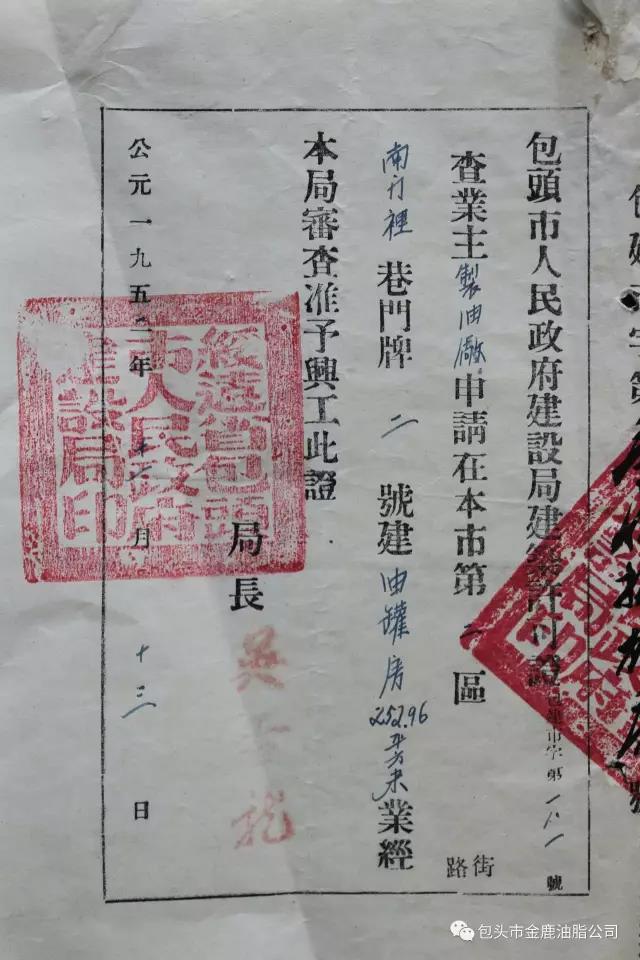 包頭市人民政府建設局建築許可證 包建市字第一八一號
查業主製油廠申請在本市第二區 街路
南门裡巷門牌二號建油罐房252.96平方米業經
本局審查准予興工此證
局長
公元一九五二年十二月十三日
綏遠省包頭
市人民政府
建設局印
包头市金鹿油脂公司